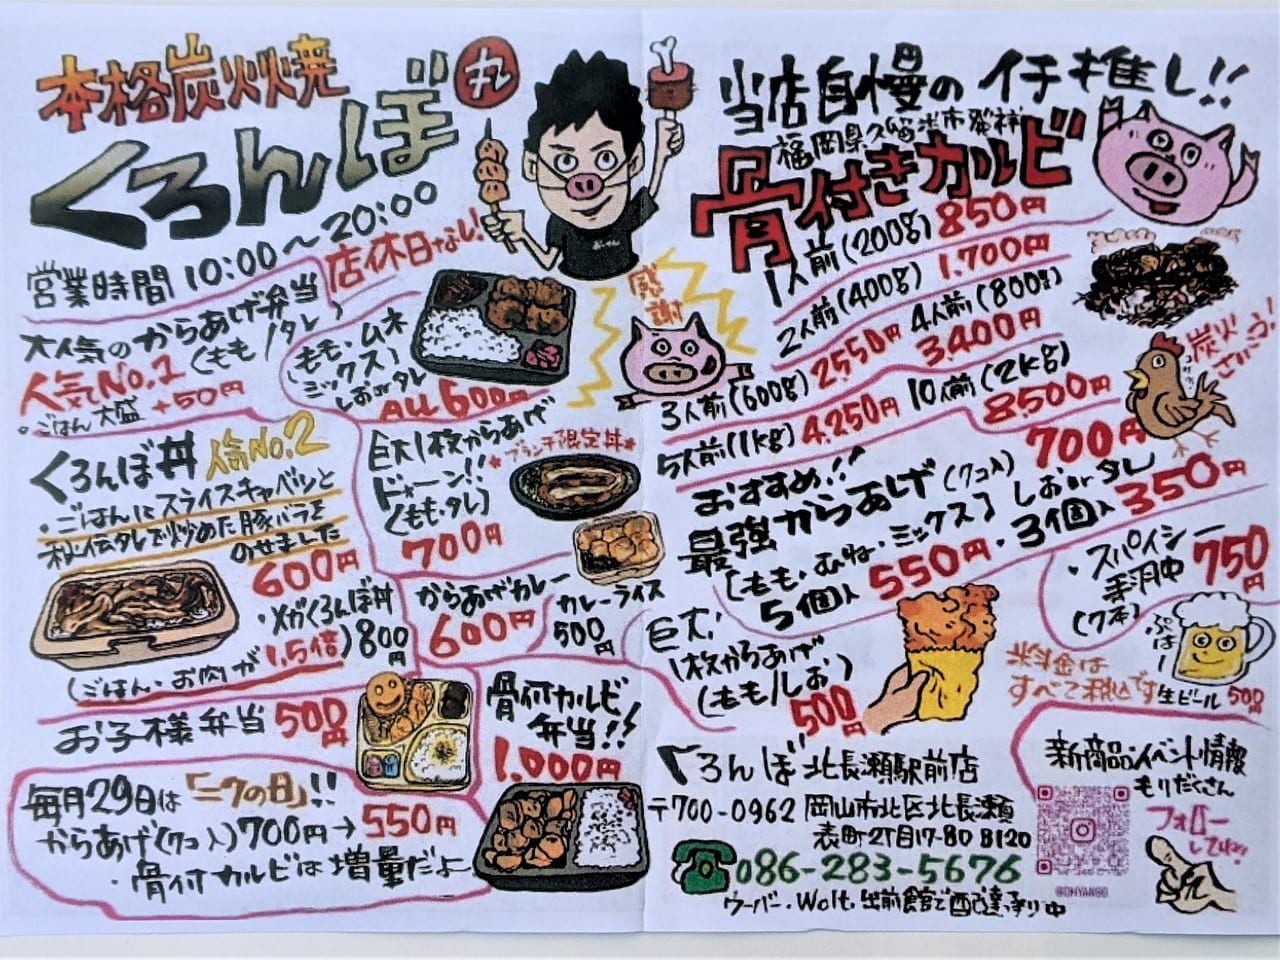 本格炭火焼
くろんぼ
丸
営業時間 10:00〜20:00
店休日なし!
大人気のからあげ弁当
(もも/タレ)
人気No.1
・ごはん大盛 +50円
(もも・ムネ
ミックス)
しおorタレ
ALL600円
くろんぼ丼 人気No.2
・ごはんにスライスキャベツと
秘伝タレで炒めた豚バラを
のせました
600円
・メガくろんぼ丼
(ごはん・お肉が1.5倍) 800円
巨大1枚からあげ
ドォーン!!
(もも・タレ)
700円
★ブランチ限定丼★
からあげカレー
600円
カレーライス
500円
お子様弁当 500円
骨付カルビ
弁当!!
1.000円
毎月29日は「ニクの日」!!
からあげ(7コ入)700円→550円
・骨付カルビは増量だよ
感謝
当店自慢のイチ推し!!
福岡県久留米市発祥
骨付きカルビ
1人前(200g)850円
2人前(400g)1.700円
3人前(600g)2550円
4人前(800g)
3400円
5人前(1kg)4.250円
10人前(2kg)
8500円
炭火
さいこう!
おすすめ!!
最強からあげ(7コ入) 700円
(もも・むね・ミックス) しおorタレ
5個入 550円・3個入 350円
巨大!
1枚からあげ
(もも/しお)
500円
・スパイシー
手羽中
(7本)
750円
ぷはー!
生ビール 500円
※料金は
すべて税込です
くろんぼ 北長瀬駅前店
〒700-0962 岡山市北区北長瀬
表町2丁目17-80 B120
086-283-5676
ウーバー・Wolt・出前館で配達承り中
新商品・イベント情報
もりだくさん
フォロー
してね!!
@OHYANGG